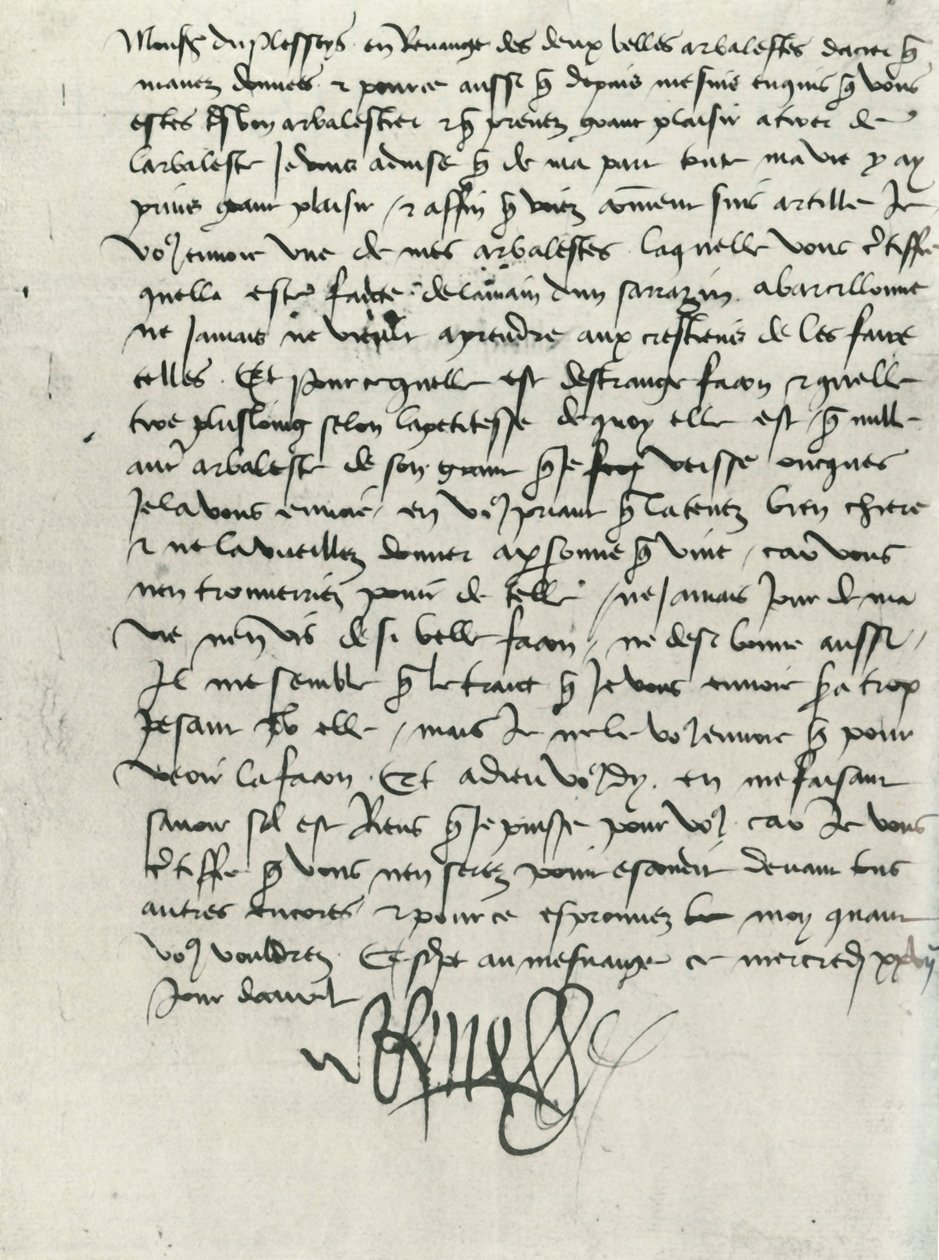 Mons du plesseys en Revange des deux belles arbalestes dacier q
mavez donnees & pource aussi q depuis me suis enquis q vous
estes tsbon arbalestier & q prenez grant plaisir a tirer de
larbaleste Je vous advise q de ma part toute ma vie y ay
prins grant plaisir / & affin q voiez coment suis artille Je
vos envoie une de mes arbalestes laquelle vous ctiffie
quelle este faicte de la main dun sarrazin a barcillonne
ne Jamais ne vieult aprendre aux crestiens de les faire
telles . Et pour ce quelle est destrange facon & quelle
tire plus loing selon la petitesse de quoy elle est q nulle
autr arbaleste de son grant q Je veisse oncques
Je la vous envoie en vos priant q la tenez bien chiere
& ne la vueillez donner a psonne q vive / car vous
nen trouverriez point de telle / ne Jamais Jour de ma
vie nen vis de si belle facon / ne de si bonne aussi /
Il me semble q le traict q Je vous envoie sa trop
pesant po elle / mais Je ne le vos envoie q pour
veoir la facon . Et adieu vos dy . en me faisant
savoir sil est Riens q Je puisse pour vos . car Je vous
ctiffie q vous nen serez point esconduit devant tous
autres encores & pour ce esprouvez moy quant
vos vouldrez . Escript au mesnange ce mercredj xxvij
Jour davril
Rene